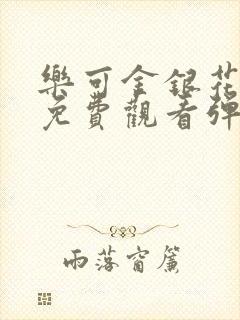 樂可金銀花
免費觀看彈
雨落窗簾